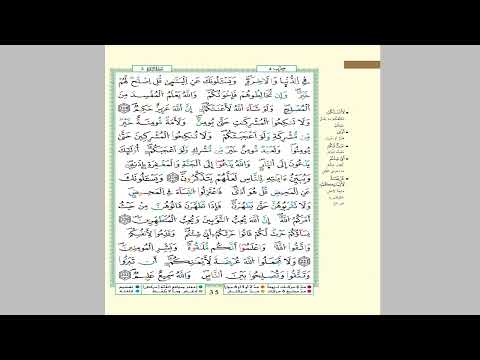 فِى ٱلدُّنْيَا وَٱلْـَٔاخِرَةِ ۗ وَيَسْـَٔلُونَكَ عَنِ ٱلْيَتَـٰمَىٰ ۖ قُلْ إِصْلَاحٌ لَّهُمْ
خَيْرٌ ۖ وَإِن تُخَالِطُوهُمْ فَإِخْوَٰنُكُمْ ۚ وَٱللَّهُ يَعْلَمُ ٱلْمُفْسِدَ مِنَ
ٱلْمُصْلِحِ ۚ وَلَوْ شَآءَ ٱللَّهُ لَأَعْنَتَكُمْ ۚ إِنَّ ٱللَّهَ عَزِيزٌ حَكِيمٌ ٢٢٠
وَلَا تَنكِحُوا۟ ٱلْمُشْرِكَـٰتِ حَتَّىٰ يُؤْمِنَّ ۚ وَلَأَمَةٌ مُّؤْمِنَةٌ خَيْرٌ
مِّن مُّشْرِكَةٍ وَلَوْ أَعْجَبَتْكُمْ ۗ وَلَا تُنكِحُوا۟ ٱلْمُشْرِكِينَ حَتَّىٰ
يُؤْمِنُوا۟ ۚ وَلَعَبْدٌ مُّؤْمِنٌ خَيْرٌ مِّن مُّشْرِكٍ وَلَوْ أَعْجَبَكُمْ ۗ أُو۟لَـٰٓئِكَ
يَدْعُونَ إِلَى ٱلنَّارِ ۖ وَٱللَّهُ يَدْعُوٓا۟ إِلَى ٱلْجَنَّةِ وَٱلْمَغْفِرَةِ بِإِذْنِهِۦ ۖ
وَيُبَيِّنُ ءَايَـٰتِهِۦ لِلنَّاسِ لَعَلَّهُمْ يَتَذَكَّرُونَ ٢٢١ وَيَسْـَٔلُونَكَ
عَنِ ٱلْمَحِيضِ ۖ قُلْ هُوَ أَذًى فَٱعْتَزِلُوا۟ ٱلنِّسَآءَ فِى ٱلْمَحِيضِ ۖ
وَلَا تَقْرَبُوهُنَّ حَتَّىٰ يَطْهُرْنَ ۖ فَإِذَا تَطَهَّرْنَ فَأْتُوهُنَّ مِنْ حَيْثُ
أَمَرَكُمُ ٱللَّهُ ۚ إِنَّ ٱللَّهَ يُحِبُّ ٱلتَّوَّٰبِينَ وَيُحِبُّ ٱلْمُتَطَهِّرِينَ ٢٢٢
نِسَآؤُكُمْ حَرْثٌ لَّكُمْ فَأْتُوا۟ حَرْثَكُمْ أَنَّىٰ شِئْتُمْ ۖ وَقَدِّمُوا۟ لِأَنفُسِكُمْ ۚ
وَٱتَّقُوا۟ ٱللَّهَ وَٱعْلَمُوٓا۟ أَنَّكُم مُّلَـٰقُوهُ ۗ وَبَشِّرِ ٱلْمُؤْمِنِينَ
٢٢٣ وَلَا تَجْعَلُوا۟ ٱللَّهَ عُرْضَةً لِّأَيْمَـٰنِكُمْ أَن تَبَرُّوا۟
وَتَتَّقُوا۟ وَتُصْلِحُوا۟ بَيْنَ ٱلنَّاسِ ۗ وَٱللَّهُ سَمِيعٌ عَلِيمٌ ٢٢٤
35